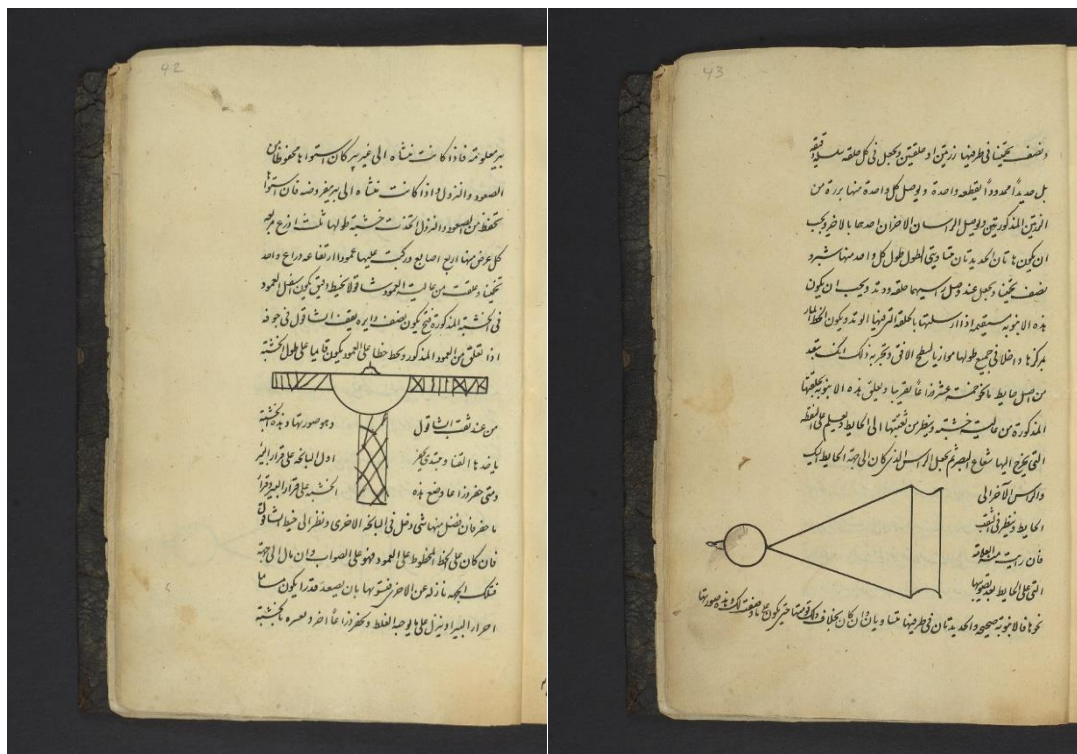 42
بير معلومة فاذا كانت منشأه الى غير بير كان استواها محفوظا من
الصعود والنزول واذا كانت منشاه الى بير مفروضه فان استوا
تحفظ من الصعود والنزول اتخذت خشبة طولها ثلث اذرع مربعه
كل عرض منها اربع اصابع وركبت عليها عمودا ارتفاعه ذراع واحد
تخمينا وعلقت من عالية العمود شاقولا بخيط دقيق يكون اسفل العمود
فى الخشبة المذكورة فتح يكون نصف دايره يقف الشاقول فى جوفه
اذا تعلق من العمود المذكور وتخط خطا على العمود يكون قايما على طول الخشبة
من عند ثقب الشاقول وهو صورتها وهذه الخشبة
ياخذها القنا ويبتدى بحفر اول البانجه على قرار البير
ومتى حفر ذراعا وضع هذه الخشبة على قرار البير وقرار
ما حفر فان فضل منها شى دخل فى البانجه الاخرى ونظر الى خيط الشاقول
فان كان على الخط المخطوط على العمود فهو على الصواب وان مال الى جهة
فتلك الجهه نازله عن الاخرى فتسويها بان يصعد قدرا يكون
احد البير او ينزل على ما يوجبه الغلط ويحفر ذراعا اخر ويعتبره بالخشبة
43
ونصف تخمينا فى طرفيها زرتين او حلقتين وتجعل فى كل حلقه سلسلة دقيقه
بل حديدا ممدودا لقطعه واحدة ويوصل كل واحدة منها بزرة من
الزرتين المذكورتين ويوصل الراسان الاخران احدهما بالاخر ويجب
ان يكون هاتان الحديدتان متساويتى الطول طول كل واحد منها شبر و
نصف تخمينا وتجعل عند وصل راسيهما حلقه ووتد ويجب ان يكون
هذه الانبوبه مستقيم اذا ارسلتها بالحلقه التى فيها الوتد ويكون الخط المار
بمركزها داخلا فى جميع طولها موازيا لسطح الافق وتجربه ذلك انك تبعد
من اصل حايط ما نحو خمسة عشر ذراعا تقريبا وتعلق هذه الانبوبه بحلقتها
المذكورة من عالية خشبته وينظر من ثقبتها الى الحايط ويعلم على النقطه
التى يخرج اليها شعاع البصر ثم تجعل الراس الذى كان الى جهة الحايط اليك
والراس الآخر الى
الحايط وينظر فى الثقب
فان رايت العلامه
التى على الحايط بعد تصويبها
نحوها فالانبوبة صحيح والحديدتان فى طرفيها متساويان وان كان بخلاف ذلك قومتها حتى يكون على ما وصفته لك وهذه صورتها